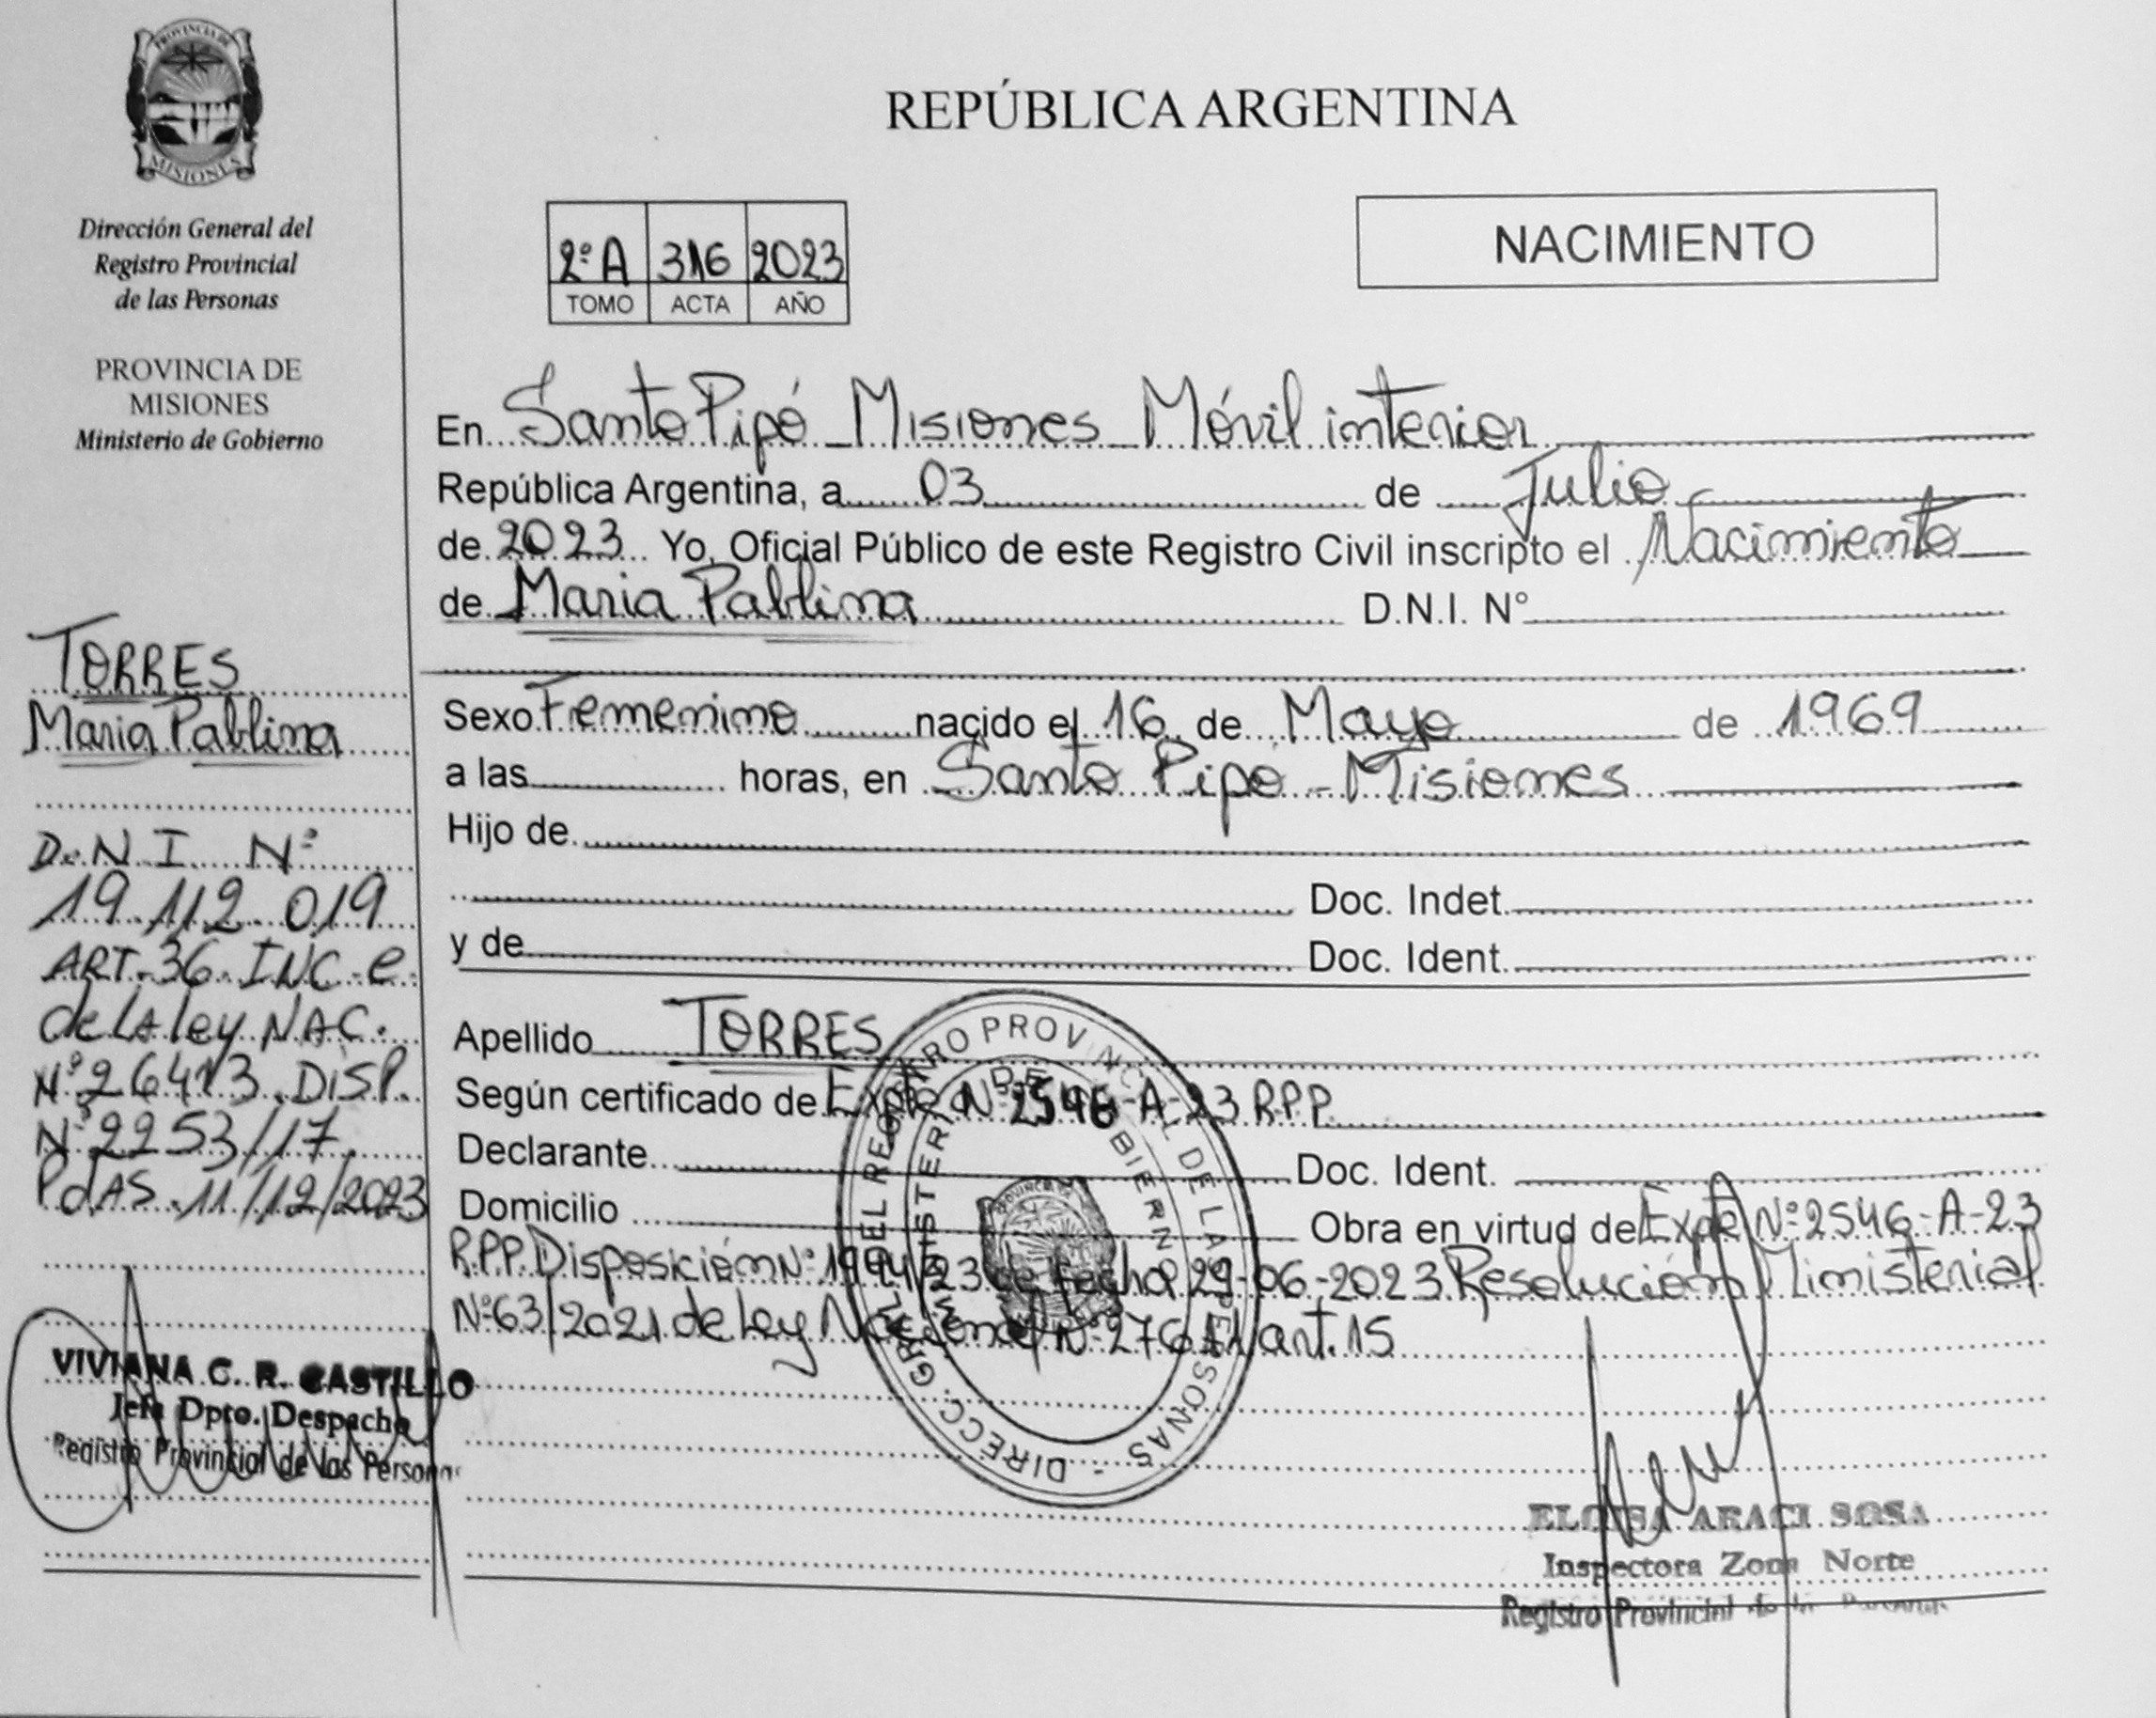 PROVINCIA DE
MISIONES
Dirección General del
Registro Provincial
de las Personas
PROVINCIA DE
MISIONES
Ministerio de Gobierno
TORRES
Maria Pablina
D.N.I. Nº
19.112.019
ART. 36. INC. e
de la ley NAC.
Nº 26413. DISP.
Nº 2253/17.
PdAS. 11/12/2023
VIVIANA C. R. CASTILLO
Jefa Dpto. Despacho
Registro Provincial de las Personas
REPÚBLICA ARGENTINA
2º A 316 2023
TOMO ACTA AÑO
NACIMIENTO
En Santo Pipó _ Misiones _ Móvil interior
República Argentina, a 03 de Julio
de 2023 Yo, Oficial Público de este Registro Civil inscripto el Nacimiento
de Maria Pablina D.N.I. N°
Sexo Femenino nacido el 16 de Mayo de 1969
a las horas, en Santo Pipó - Misiones
Hijo de
Doc. Indet.
y de Doc. Ident.
Apellido TORRES
Según certificado de Expte Nº 2546-A-23 R.P.P.
Declarante Doc. Ident.
Domicilio Obra en virtud de Expte Nº 2546-A-23
R.P.P. Disposición Nº de fecha 29-06-2023 Resolución Ministerial
Nº 63/2021 de ley Nacional Nº art. 15
DIRECC. GRAL. DEL REGISTRO PROVINCIAL DE LAS PERSONAS -
MINISTERIO DE GOBIERNO
ELOISA ARACI SOSA
Inspectora Zona Norte
Registro Provincial de las Personas